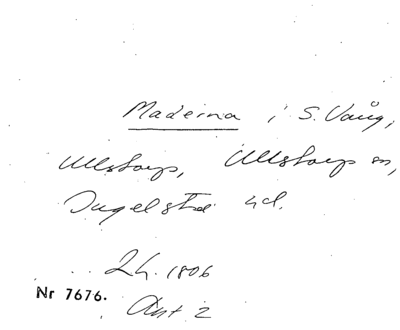 Maderna i S. Vång,
Ullstorps, Ullstorps sn,
Ingelstad hd.
24. 1806
Nr 7676.
Akt 2